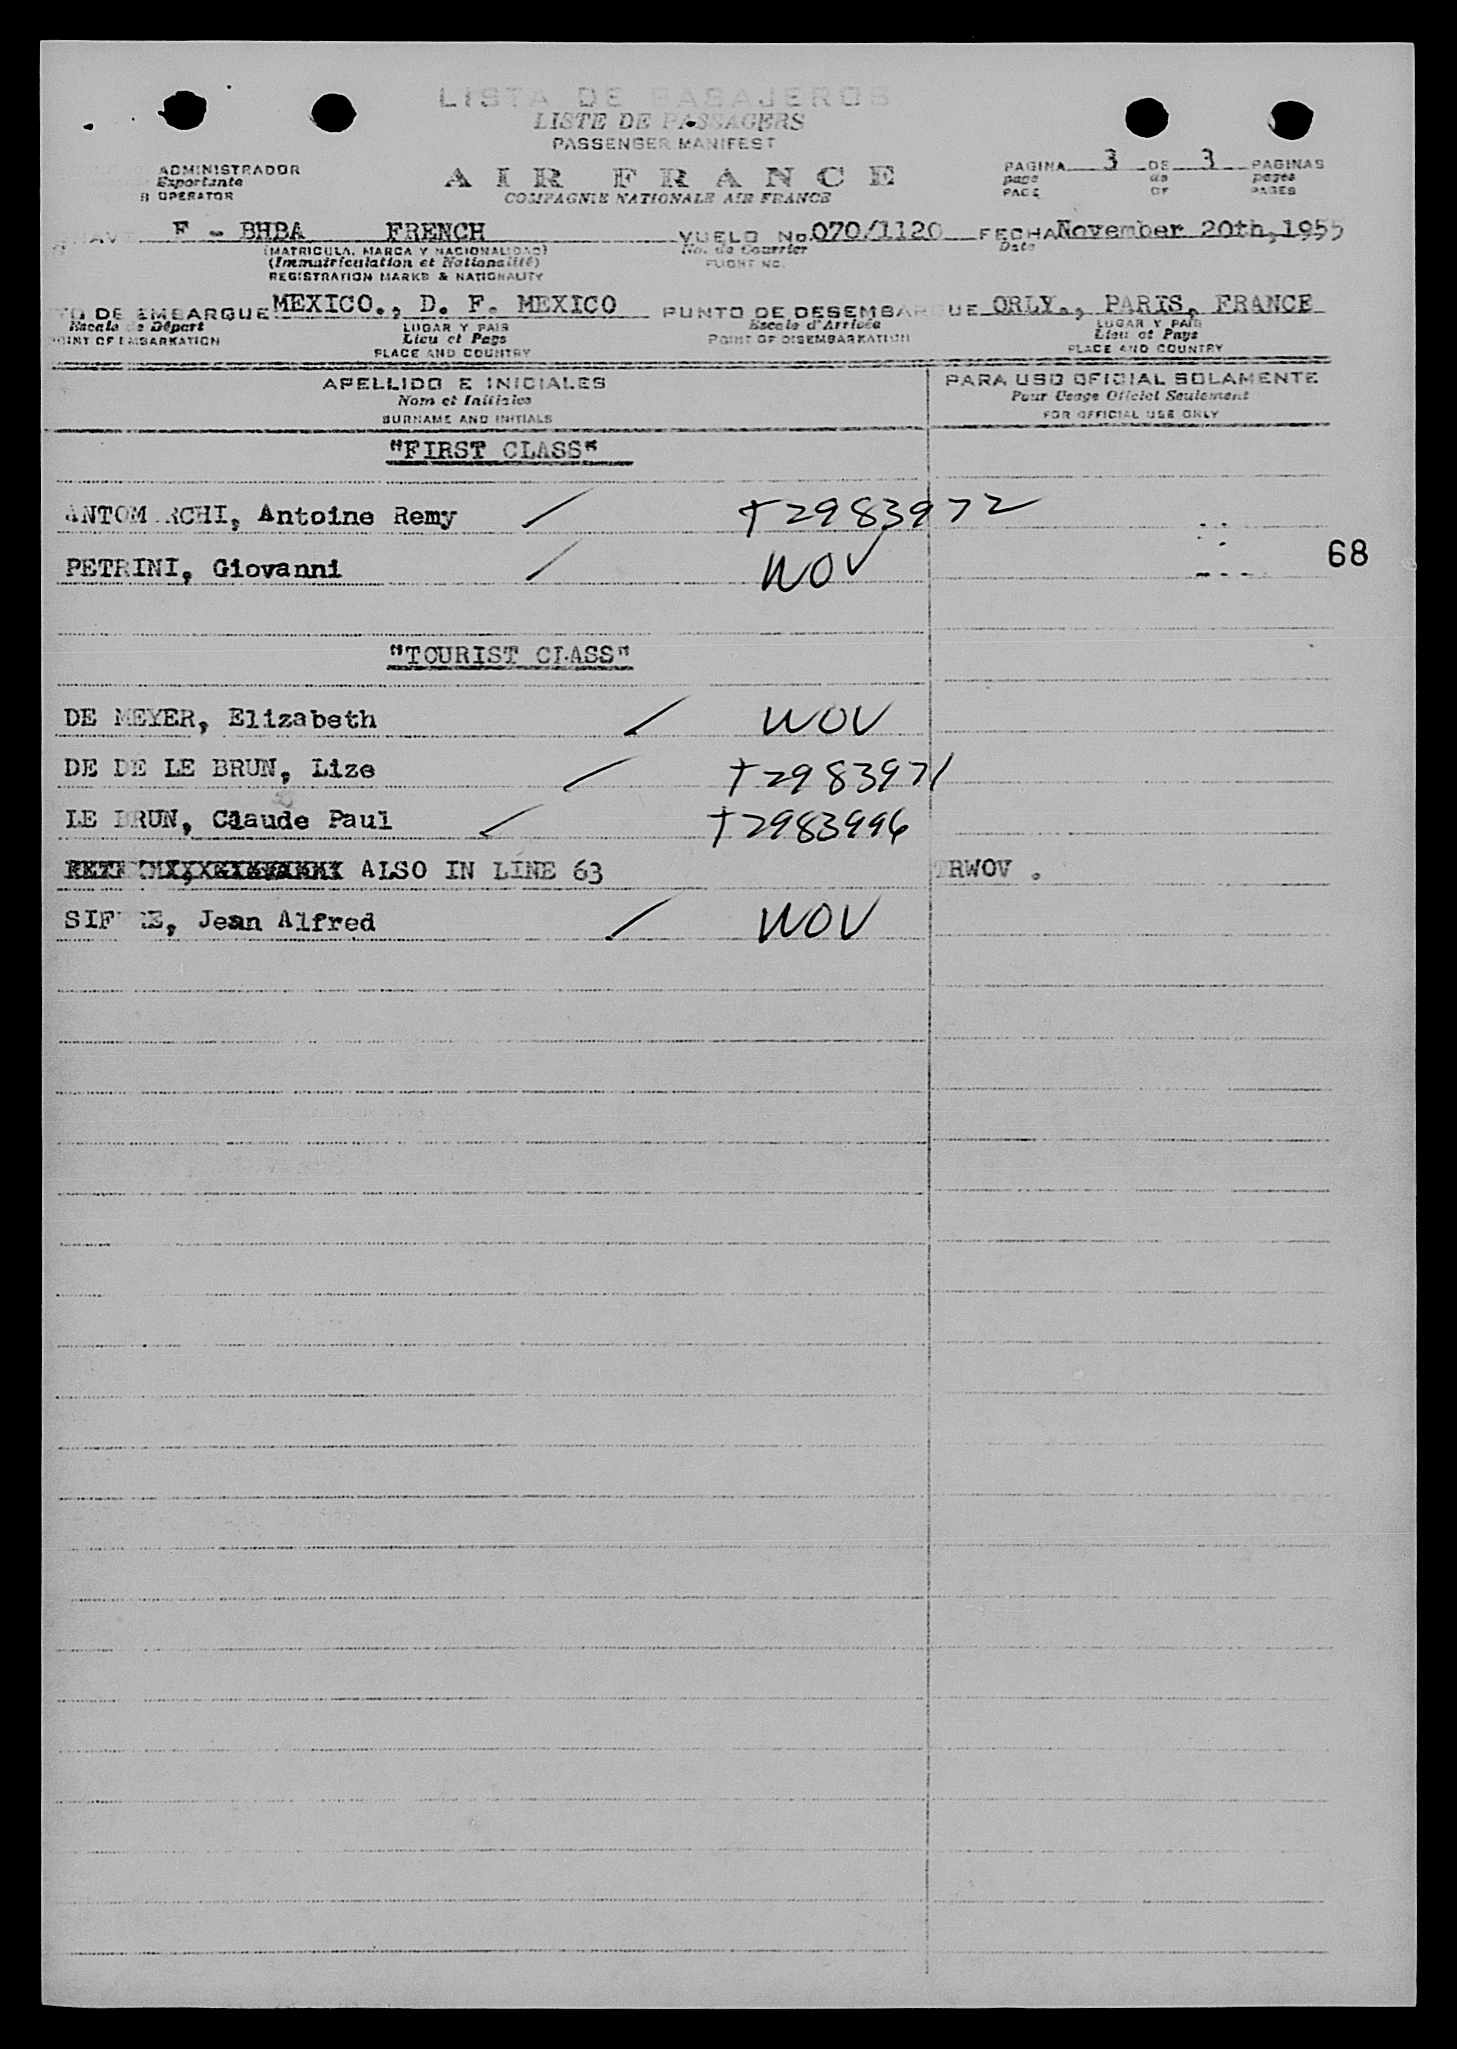 LISTA DE PASAJEROS
LISTE DE PASSAGERS
PASSENGER MANIFEST
ADMINISTRADOR
Exportante
OPERATOR
AIR FRANCE
COMPAGNIE NATIONALE AIR FRANCE
PAGINA 3 DE 3 PAGINAS
page de pages
PAGE OF PAGES
F - BHBA FRENCH VUELO No. 070/1120 FECHA November 20th, 1955
(MATRICULA, MARCA Y NACIONALIDAD) No. de Courrier Date
(Immatriculation et Nationalité) FLIGHT NO.
REGISTRATION MARKS & NATIONALITY
DE EMBARQUE MEXICO., D. F. MEXICO PUNTO DE DESEMBARQUE ORLY., PARIS, FRANCE
Escale de Départ LUGAR Y PAIS Escale d'Arrivée LUGAR Y PAIS
POINT OF EMBARKATION Lieu et Pays POINT OF DISEMBARKATION Lieu et Pays
PLACE AND COUNTRY PLACE AND COUNTRY
APELLIDO E INICIALES PARA USO OFICIAL SOLAMENTE
Nom et Initiales Pour Usage Officiel Seulement
SURNAME AND INITIALS FOR OFFICIAL USE ONLY
"FIRST CLASS"
ANTOM RCHI, Antoine Remy / T2983972
PETRINI, Giovanni / WOV 68
"TOURIST CLASS"
DE MEYER, Elizabeth / WOV
DE DE LE BRUN, Lize / T2983971
LE BRUN, Claude Paul / T2983996
ALSO IN LINE 63 TRWOV .
SIF RE, Jean Alfred / WOV